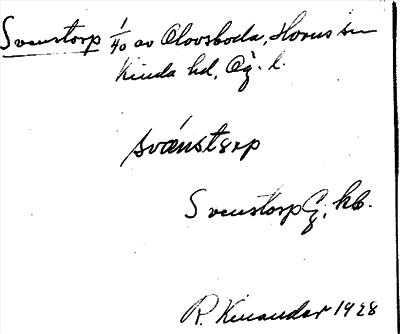 Svenstorp 1/40 av Olovsboda, Horns sn
Kinda hd, Ög. l.
svǽnstærp
Svenstorp Ög. kb.
R. Kinander 1928